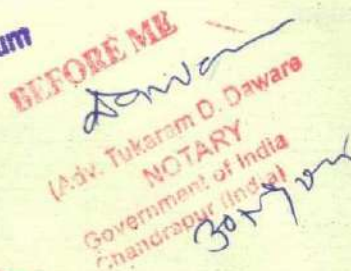 um
BEFORE ME
(Adv. Tukaram D. Daware
NOTARY
Government of India
Chandrapur (India)